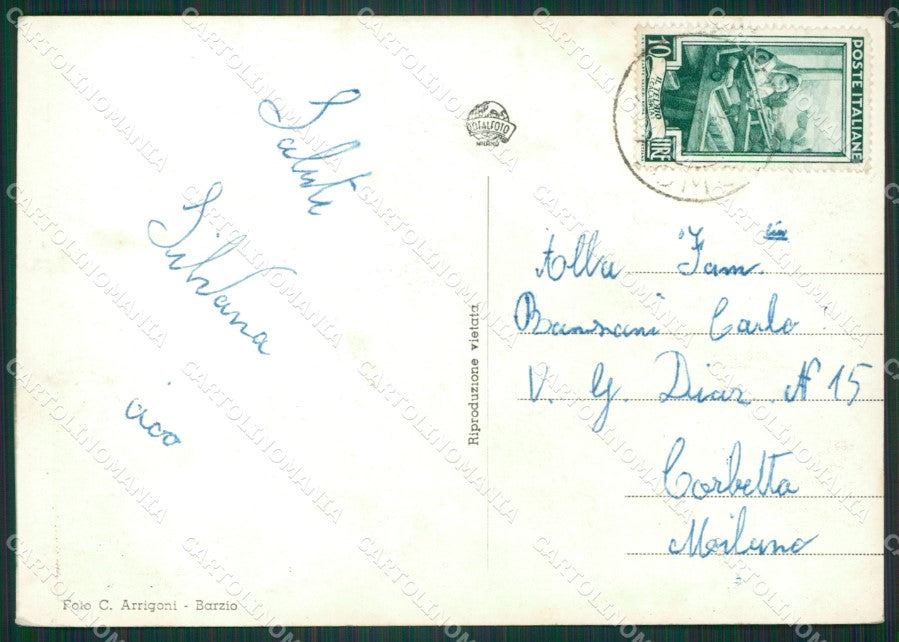 Saluti
Silvana
ciao
Foto C. Arrigoni - Barzio
ROTALFOTO
MILANO
Riproduzione vietata
10
LIRE
POSTE ITALIANE
Alla Fam.
Carlo
V. G. Diaz N 15
Corbetta
Milano
CARTOLINOMANIA